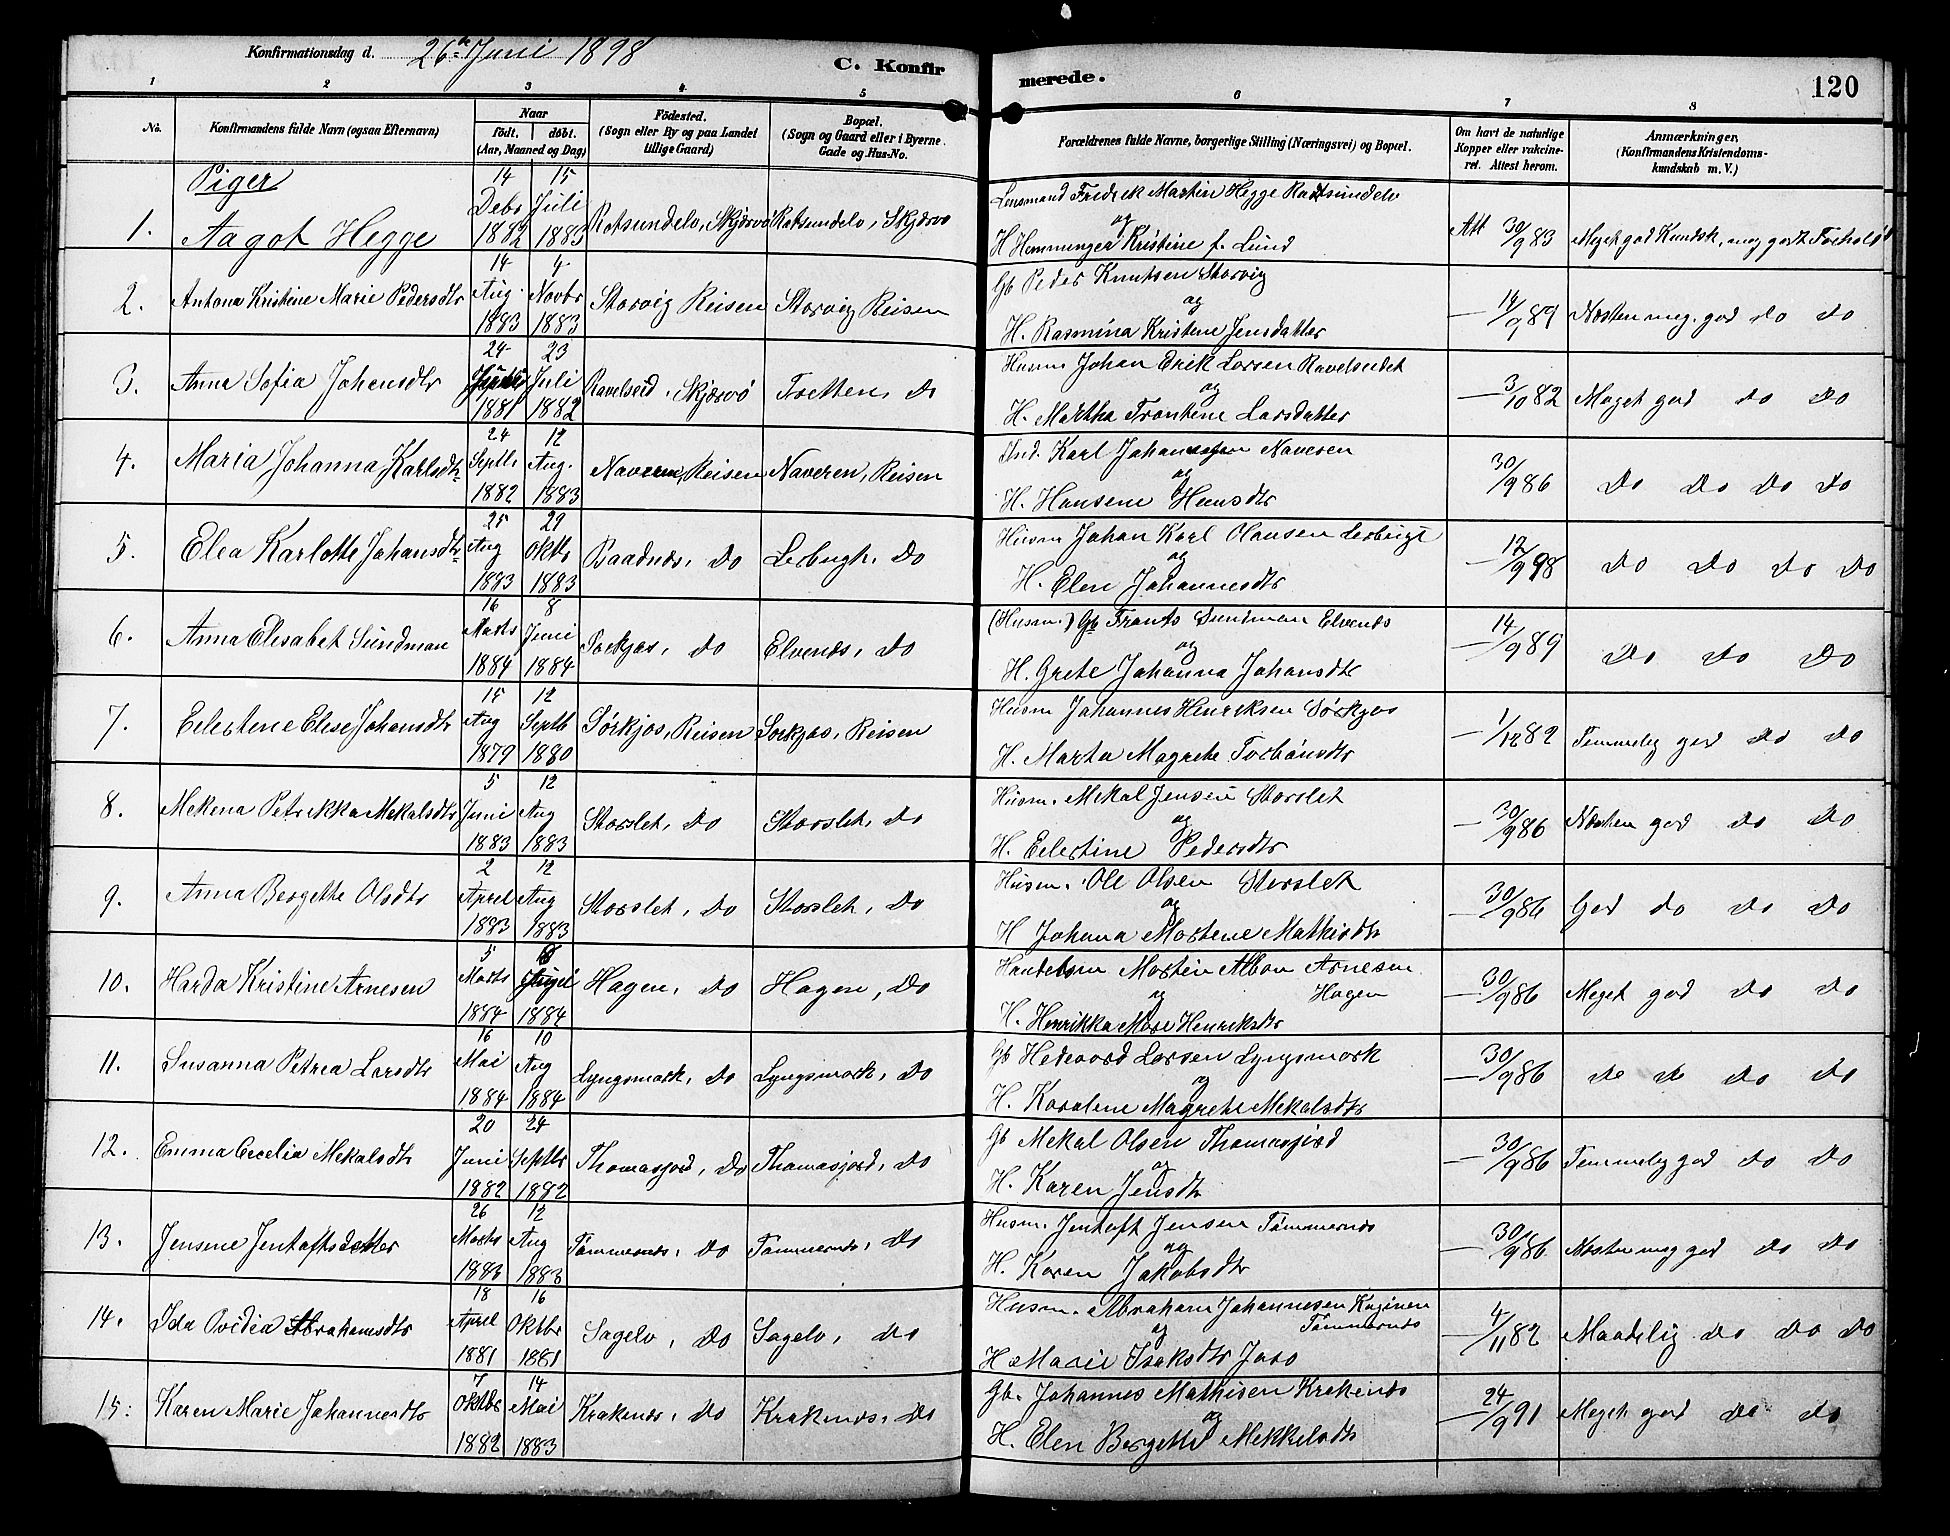 Konfirmationsdag d. 26de Juni 1898
C. Konfirmerede.
120
1 2 3 4 5 6 7 8
No.
Konfirmandens fulde Navn (ogsaa Efternavn)
Naar
født. døbt.
(Aar, Maaned og Dag)
Fødested.
(Sogn eller By og paa Landet tillige Gaard)
Bopæl.
(Sogn og Gaard eller i Byerne Gade og Hus-No.
Forældrenes fulde Navne, borgerlige Stilling (Næringsvei) og Bopæl.
Om havt de naturlige Kopper eller vakcineret. Attest herom.
Anmærkninger,
(Konfirmandens Kristendomskundskab m. V.)
Piger
1. Aagot Hegge 14 Debr 1882 15 Juli 1883 Rotsundelv, Skjærvø Rotsundelv, Skjærvø
Lensmand Fredrek Martin Hegge Rodtsundelv
og
H Hemminger Kristine f. Lund
Att 30/9 83 Meget god Kundsk, meg godt Forhold
2. Antona Kristine Marie Pedersdtr 14 Aug. 1883 4 Novbr 1883 Storvig Reisen Storvig Reisen
Gb Peder Knutsen Storvig
og
H. Rasmina Kristene Jensdatter
— 14/9 89 Næsten meg. god do do
3. Anna Sofia Johansdtr 24 1881 23 Juli 1882 Ravelseid, Skjærvø Fretten, do
Husm Johan Erik Larsen Ravelseidet
og
H. Martha Frantene Larsdatter
— 3/10 82 Meget god do do
4. Maria Johanna Karlsdtr 24 Septbr 1882 12 Aug. 1883 Naveren, Reisen Naveren, Reisen
Ind. Karl Johannesen Naveren
og
H. Hansene Hansdtr
30/9 86 Do Do Do Do
5. Elea Karlotte Johansdtr 25 Aug 1883 29 Oktbr 1883 Baadnes, do Lerbugt, do
Husm Johan Karl Olausen Lerbugt
og
H. Elen Johannesdtr
— 12/9 98 Do Do Do Do
6. Anna Elisabet Sundman 16 Marts 1884 8 Juni 1884 Sørkjos, do Elvenes, do
(Husm.) Gb Frants Sundman Elvenes
og
H. Grete Johanna Johansdtr
— 14/9 89 Do Do Do
7. Eelestene Elise Johansdtr 15 Aug 1879 12 Septb 1880 Sørkjos, Reisen Sørkjos, Reisen
Husm Johannes Henriksen Sørkjos
H. Marta Magrete Torbønsdtr
— 1/12 82 Temmelig god do do
8. Mekena Petrikka Mekalsdtr 5 Juni 1883 12 Aug 1883 Storslet, do Storslet, do
Husm. Mekal Jensen Storslet
og
H. Eelestine Pedersdtr
— 30/9 86 Næsten god do do
9. Anna Bergethe Olsdtr 2 Aprel 1883 12 Aug 1883 Storslet, do Storslet, do
Husm. Ole Olsen Storslet
og
H Johana Mortene Mathisdtr
— 30/9 86 God do do do
10. Harda Kristine Arnesen 5 Marts 1884 1884 Hagen, do Hagen, do
Handelsm Morten Albon Arnesen
og Hagen
H. Henrikka Mare Henriksdtr
— 30/9 86 Meget god do do
11. Susanna Petrea Larsdtr 16 Mai 1884 10 Aug 1884 Lyngsmark, do Lyngsmark, do
Gb Hedevard Larsen Lyngsmark
og
H. Karolene Magrete Mekalsdtr
— 30/9 86 do do do do
12. Emma Cecelia Mekalsdtr 20 Juni 1882 24 Septbr 1882 Thomasjord, do Thomasjord, do
Gb Mekal Olsen Thomasjord
og
H. Karen Jensdtr
— 30/9 86 Temmelig god do do
13. Jensine Jentoftsdatter 26 Marts 1883 12 Aug 1883 Tømmernes, do Tømmernes, do
Husm. Jentoft Jensen Tømmernes
og
H. Karen Jakobsdtr
— 30/9 86 Næsten meg god do do
14. Ida Ovedia Abrahamsdtr 18 Aprel 1881 16 Oktbr 1881 Sagelv, do Sagelv, do
Husm. Abraham Johannesen Kaginen
og Tømmernes
H Marie Isaksdtr Jaro
— 4/11 82 Maadelig do do do
15. Karen Marie Johannesdtr 7 Oktbr 1882 14 Mai 1883 Krakenes, do Krakenes, do
Gb. Johannes Mathisen Krakenes
og
H. Elen Bergette Mekkelsdtr
— 24/9 91 Meget god do do